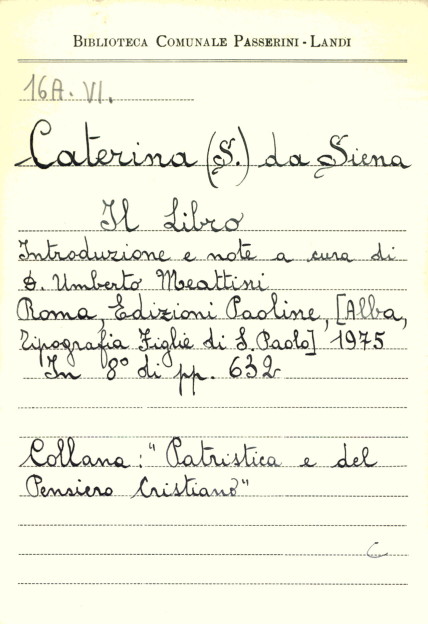 BIBLIOTECA COMUNALE PASSERINI - LANDI
16A. VI.
Caterina (S.) da Siena
Il Libro
Introduzione e note a cura di
D. Umberto Meattini
Roma, Edizioni Paoline, [Alba,
Tipografia Figlie di S. Paolo] 1975
In 8° di pp. 632
Collana: "Patristica e del
Pensiero Cristiano"
C